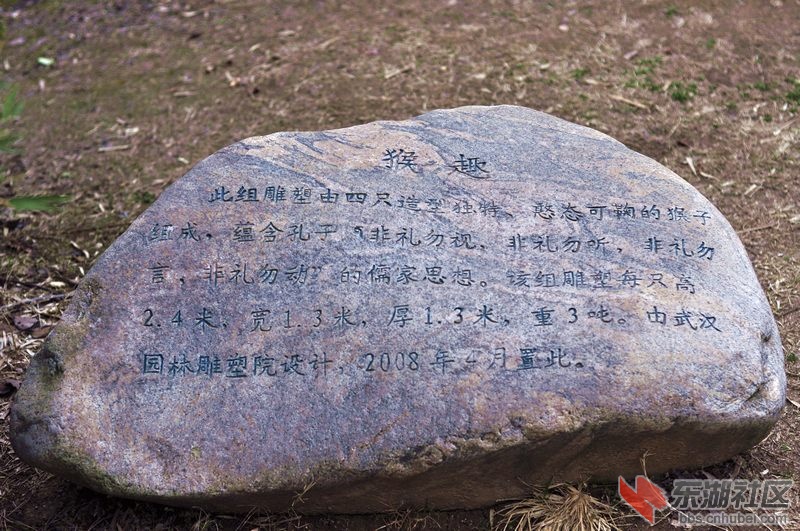 猴趣
此组雕塑由四尺造型独特、憨态可鞠的猴子
组成，蕴含孔子“非礼勿视，非礼勿听，非礼勿
言，非礼勿动”的儒家思想。该组雕塑每只高
2.4米，宽1.3米，厚1.3米，重3吨。由武汉
园林雕塑院设计，2008年4月置此。
东湖社区
bbs.cnhubei.com